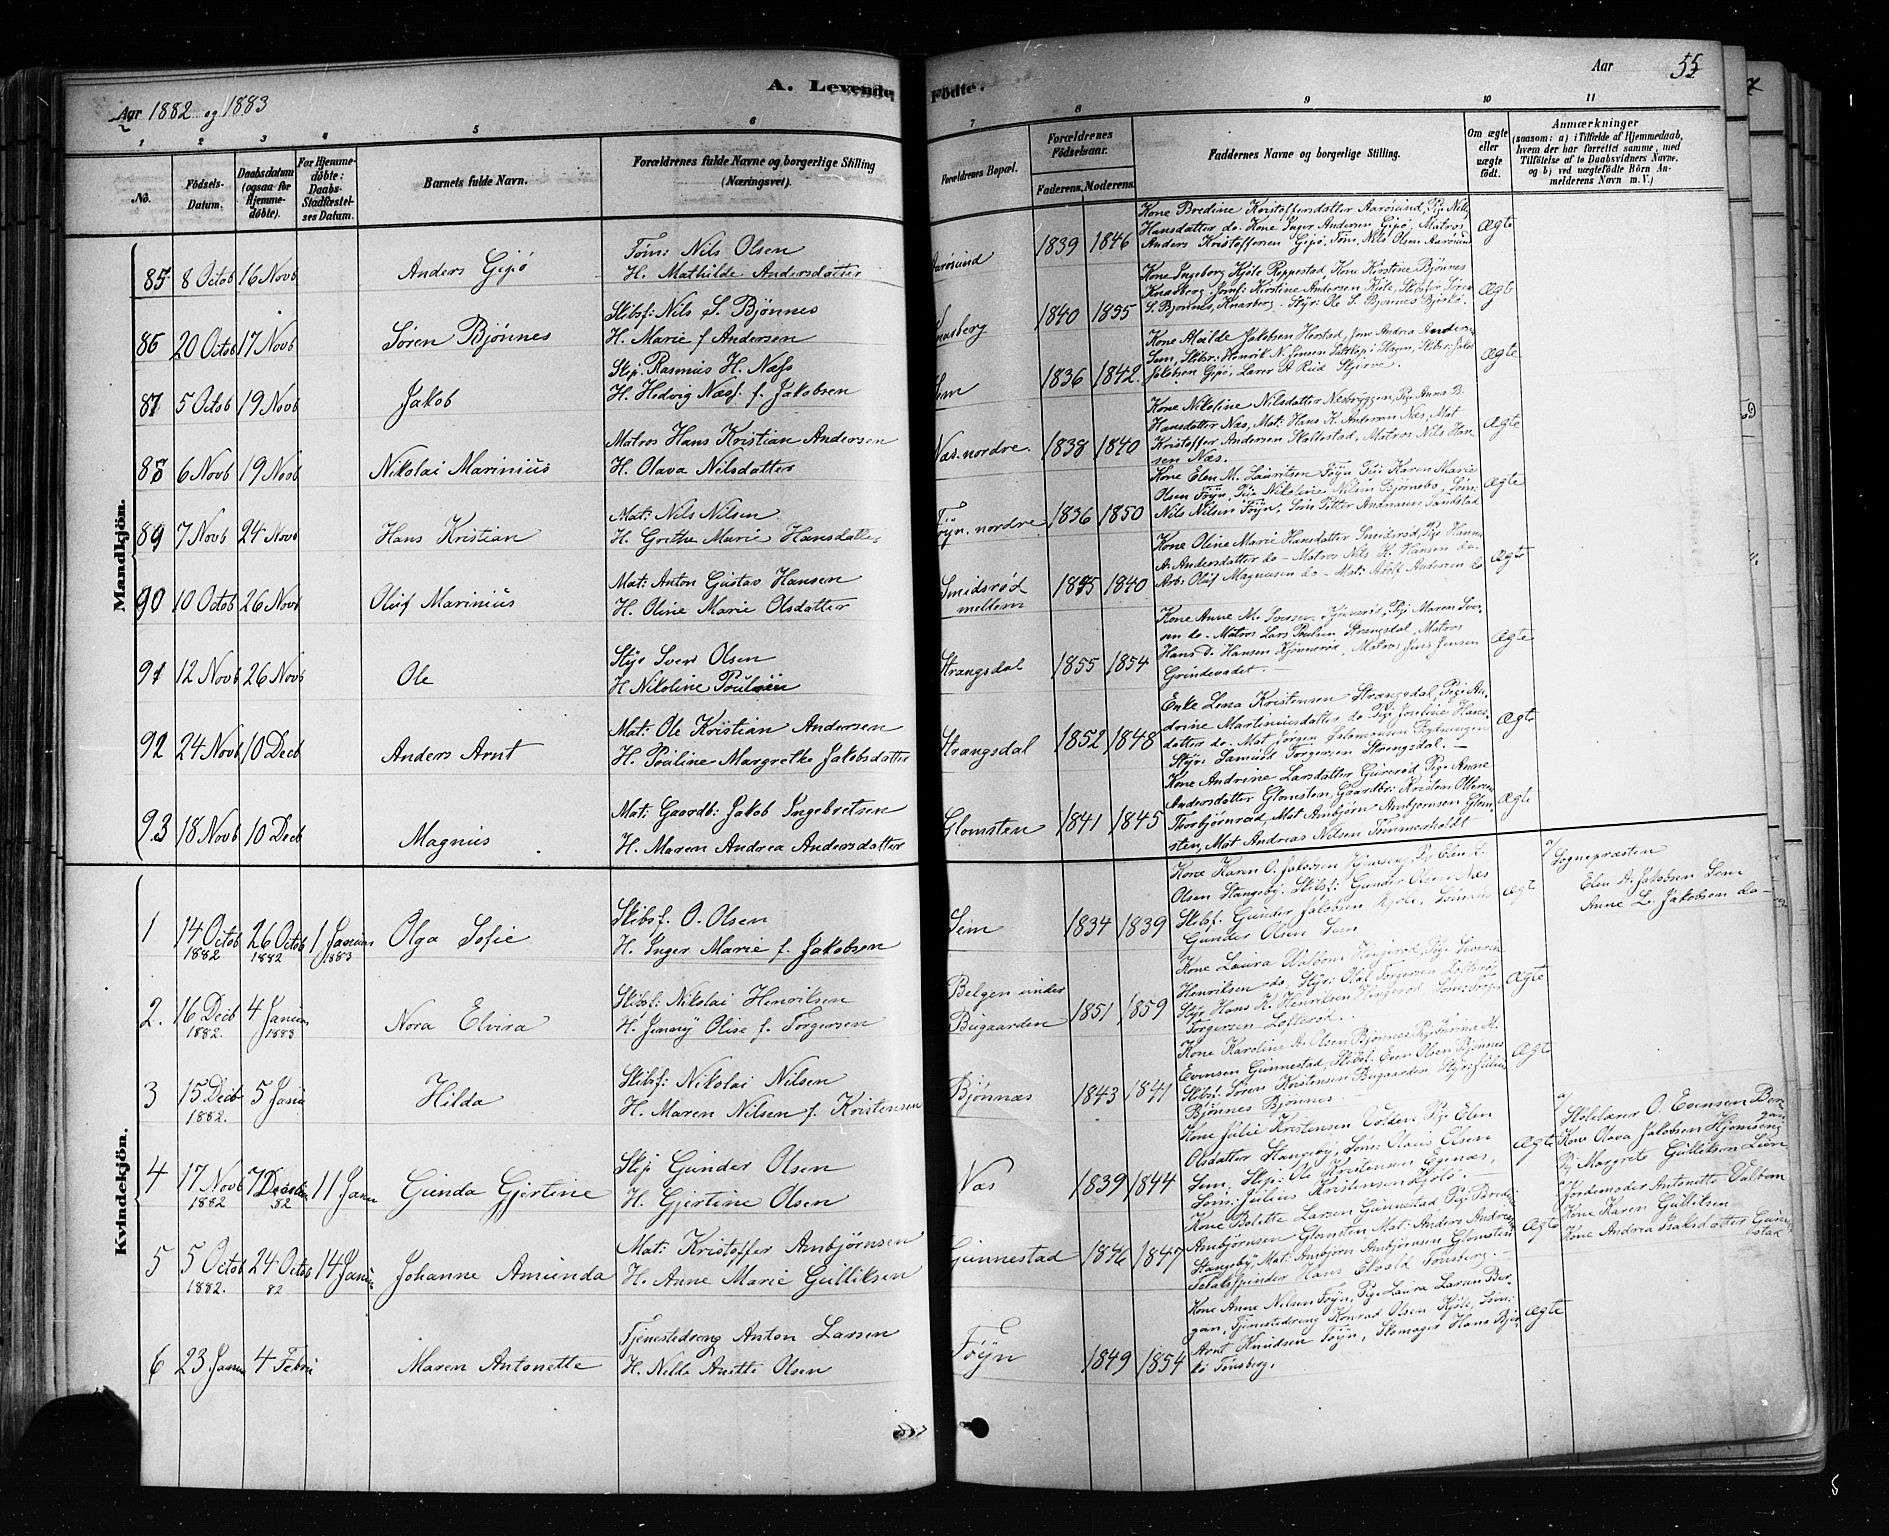 Aar 1882 og 1883
A. Levende Födte.
Aar 55
1 2 3 4 5 6 7 8 9 10 11
No.
Födsels-Datum.
Daabsdatum (ogsaa for Hjemme-döbte).
For Hjemme-döbte: Daabs-Stadfæstel-ses Datum.
Barnets fulde Navn.
Forældrenes fulde Navne og borgerlige Stilling (Næringsvei).
Forældrenes Bopæl.
Forældrenes Födselsaar.
Faderens. Moderens.
Faddernes Navne og borgerlige Stilling.
Om ægte eller uægte födt.
Anmærkninger
(saasom: a) i Tilfælde af Hjemmedaab, hvem der har forrettet samme, med Tilföielse af to Daabsvidners Navne, og b) ved uægtefödte Börn An-melderens Navn m. V.)
Mandkjön.
85 8 Octob 16 Novb Anders Gipö
Töm: Nils Olsen
H. Mathilde Andersdatter
Aarösund 1839 1846
Kone Bredine Kristoffersdatter Aarösund, Pige Nilla
Hansdatter do. Kone Inger Andersen Gipö, Matros
Anders Kristoffersen Gipö, Töm. Nils Olsen Aarösund
Ægte
86 20 Octob 17 Novb Sören Bjönnes
Skibsf: Nils S. Bjönnes
H. Marie f Andersen
Knarberg 1840 1855
Kone Ingeborg Kjöle Roppestad, Kone Kirstine Bjönnes
Knarberg, Jomf: Kirstine Andersen Kjöle, Skibsför Sören
S. Bjönnes, Knarberg. Styr: Ole S. Bjönnes
Ægte
87 5 Octob 19 Novb Jakob
Skip. Rasmus H. Næss
H. Hedvig Næss f. Jakobsen
Sem 1836 1842
Jakobsen Gipö, Lærer A Rud Skjerve.
Ægte
88 6 Novb 19 Novb Nikolai Marinius
Matros Hans Kristian Andersen
H. Olava Nilsdatter
Næs nordre 1838 1840
Kone Nikoline Nilsdatter Næsbryggen, Pige Anna B.
Hansdatter Næs, Mat: Hans K. Andersen Næs, Mat
Kristoffer Andersen Skallestad, Matros Nils Han-
sen Næs.
Ægte
89 7 Novb 24 Novb Hans Kristian
Mat: Nils Nilsen
H. Grethe Marie Hansdatter
Föyn nordre 1836 1850
Kone Elen M. Lauritsen Föyn, Pige Karen Marie
Olsen Föyn, Pige Nikoline Nilsen Bjørnebo, Töm:
Nils Nilsen Föyn,
Ægte
90 10 Octob 26 Novb Oluf Marinius
Mat: Anton Gustav Hansen
H. Oline Marie Olsdatter
Smidsröd mellem 1845 1840
Kone Oline Marie Hansdatter Smidsröd, Pige Hanna
A. Andersdatter do - Matros Nils H. Hansen do.
Arb: Oluf Magnusen do - Mat: Adolf Andersen do
Ægte
91 12 Novb 26 Novb Ole
Styr Sver Olsen
H Nikoline Poulsen
Strængsdal 1855 1854
sen do - Matros Lars Poulsen Strængsdal, Matros
Hans D. Hansen Kjönneröd, Matros Jens Jensen
Grindevadet. -
Ægte
92 24 Novb 10 Decb Anders Arnt
Mat: Ole Kristian Andersen
H. Pouline Margrethe Jakobsdatter
Strængsdal 1852 1848
Enke Lena Kristensen Strængsdal, Pige An-
drine Martiniusdatter do. Pige Josefine Hans-
datter do. Mat Jörgen Salomonsen
Styr: Samuel Torgersen Strengsdal. -
Ægte
93 18 Novb 10 Decb Magnus
Mat: Gaardb: Jakob Ingebretsen
H. Maren Andrea Andersdatter
Glomsten 1841 1845
Kone Andrine Larsdatter Gureröd, Pige Anne
Andersdatter Glomsten, Gaardbr: Kristen Olsen
Thorbjörnröd, Mat Ambjörn Ambjörnsen Glom-
sten, Mat Andreas Nilsen Tömmerholdt
Ægte
Kvindekjön.
1 14 Octob 1882 26 Octob 1882 1 Januar 1883 Olga Sofie
Skibsf. O. Olsen
H. Inger Marie f. Jakobsen
Sem 1834 1839
Kone Karen O. Jakobsen Hjemseng, Pige Elen L.
Olsen Stangeby, Skibsf: Gunder Olsen Næs
Skibsf. Gunder Jakobsen Kjöle,
Gunder Olsen Sem
Ægt
a) Sognepræsten
Elen A. Jakobsen Sem
Anne L. Jakobsen do -
2. 16 Decb 1882. 4 Januar 1883 Nora Elvira
Skibsf: Nikolai Henriksen
H. Jenny Olise f. Torgersen
Belgen under Bugaarden 1851 1859
Kone Laura Valbom Hengeröd, Pige Severin
Henriksen do, Styr: Olaf Torgersen Lofteröd,
Styr Hans K. Henriksen Hengeröd
Torgersen Lofteröd. -
Ægte
3 15 Decb 1882. 5 Janu Hilda
Skibsf: Nikolai Nilsen
H. Maren Nilsen f. Kristensen
Bjönnæs 1843 1841
Kone Karoline A. Olsen Bjönnes, Pige Severina M.
Evensen Gunnestad, Skibsf: Even Olsen Bjönnes
Skibsf. Sören Kristensen Bugaarden, Styr: Julius
Bjönnes Bjönnes. -
Ægt
4 17 Novb 1882 7 Decbr 82 11 Janu Gunda Gjertine
Skip Gunder Olsen
H. Gjertine Olsen
Næs 1839 1844
Kone Julie Kristensen Volden, Pige Elen
Olsdatter Stangeby, Töm: Olaus Olsen
Sem, Skip: Ole Kristensen Egenæs,
Töm: Julius Kristensen Kjöle.
Ægte
a) Skolelærer O. Evensen Ber-
gan
Kone Olava Jakobsen Hjemseng
Pige Margrete Gulliksen Lien
5 5 Octob 1882. 24 Octob 82 14 Janu Johanne Amunda
Mat: Kristoffer Ambjörnsen
H. Anne Marie Gulliksen
Gunnestad 1846 1847
Kone Bolette Larsen Gunnestad, Pige Bredi-
Ambjörnsen Glomsten, Mat: Anders Andreas
Stangeby, Mat: Ambjörn Ambjörnsen Glomsten
Tobaksspinder Hans Evald Tönsberg. -
Ægte
a) Jordemoder Antonette Valbom
Kone Karen Gulliksen
Kone Andrea Isaksdatter Gun-
stad
6 23 Janu 4 Febru Maren Antonette
Tjenestedreng Anton Larsen
H. Nelda Anette Olsen
Föyn 1849 1854
Kone Anne Nilsen Föyn, Pige Laura Larsen Ber-
gan, Tjenestedreng Konrad Olsen Kjöle, Töm:
Arnt Knudsen Föyn, Skomager Hans Bjer-
kö Tönsberg.
Ægte